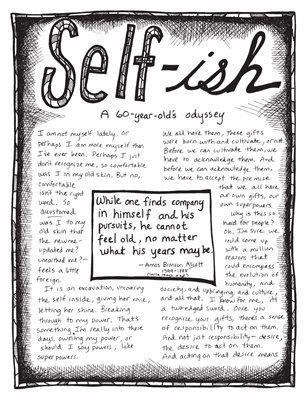 Self-ish
A 60-year-old's odyssey
I am not myself lately. Or
perhaps I am more myself than
I've ever been. Perhaps I just
don't recognize me, so comfortable
was I in my old skin. But no,
comfortable
isn't the right
word. So
accustomed
was I to my
old skin that
the newme-
updated me?
unearthed me?-
feels a little
foreign.
It is an excavation, uncovering
the self inside, giving her voice,
letting her shine. Breaking
through to my power. That's
something I'm really into these
days, owning my power, or
should I say powers, like
superpowers.
While one finds company
in himself and his
pursuits, he cannot
feel old, no matter
what his years may be.
- Amos Bronson Alcott
1799-1888
We all have them, these gifts
were born with and cultivate, or not.
Before we can cultivate them, we
have to acknowledge them. And
before we can acknowledge them,
we have to accept the premise
that we all have
our own gifts, our
own superpowers.
Why is this so
hard for people?
Oh, I'm sure we
could come up
with a million
reasons that
could encompass
the evolution of
humanity, and
society, and upbringing, and culture,
and all that. I know for me, it's
a two-edged sword. Once you
recognize your gifts, there's a sense
of responsibility to act on them.
And not just responsibility- desire,
the desire to act on them.
And acting on that desire means